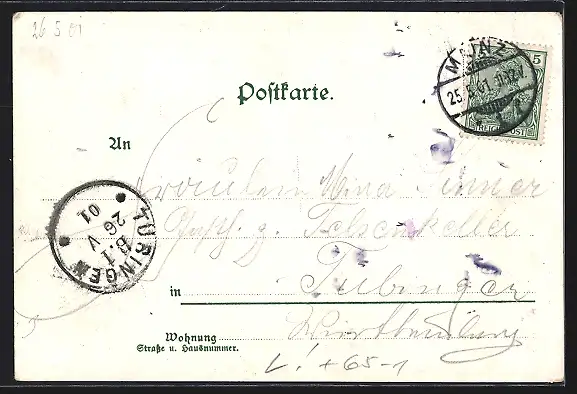 26 5 01
MAINZ
25.5.01. 11-12V.
5
REICHSPOST
Postkarte.
An
Fräulein
z. Felsenkeller
TÜBINGEN
26 V
01
in Tübingen
Württemberg
Wohnung
Straße u. Hausnummer.
L! +65-1